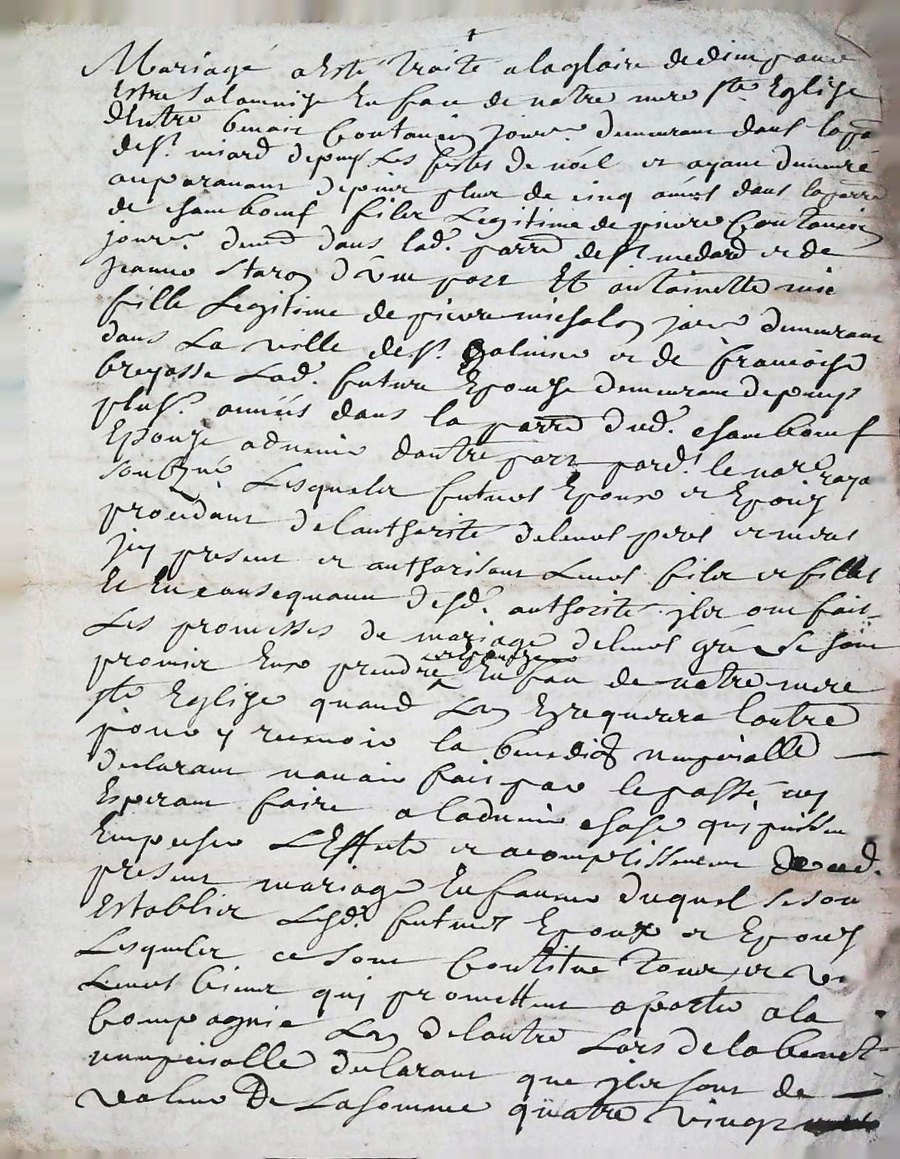 Mariage a este traite a la gloire de dieu pour
Estre solamnise En face de notre mere ste Eglise
d'Entre benoit Coutancin jour.r demeurant dans la pa
de st. miard depuis Les festes de noël et ayant demeuré
auparavant depuis plus de cinq années dans la parre
de chambœuf fils Legitime de pierre Coutancin
jour.r demt dans lad. parre de st medard et de
jeanne staron d'une part Et antoinette mic
fille Legitime de pierre michalon jour demeurant
dans La ville de st. Galmier et de francoise
breyasse Lad. future Epouze demeurant depuis
plusr. années dans la parre dud. chambœuf
Epouze advenir d'autre part pard. le nore roya
soubzné Lesquels futurs Epoux et Epouze
procedant de l'authorité de leurs peres et meres
jcy present et authorisant Leurs fils et filles
Et En consequance desd. authorité jls ont fait
Les promesses de mariage de leurs gré se sont
promis Eux prendre et Epouzer En face de notre mere
ste Eglise quand Lun Ezrequerra lautre
pour y recevoir la benedion nuptialle —
declarant navoir fait par le passé ny
Esperant faire a ladvenir chose qui puisse
Empecher L'Effect et acomplissement du ud.
present mariage En faveur duquel se sont
Establis Lesd. futurs Epoux et Epouze
Lesquels ce sont Constitué tous et un
Leurs biens qui promettent aporter a la
Compagnie Lun de lautre Lors de la bened
nuptialle declarant que jls sont de —
valeur De La somme quatre vingt